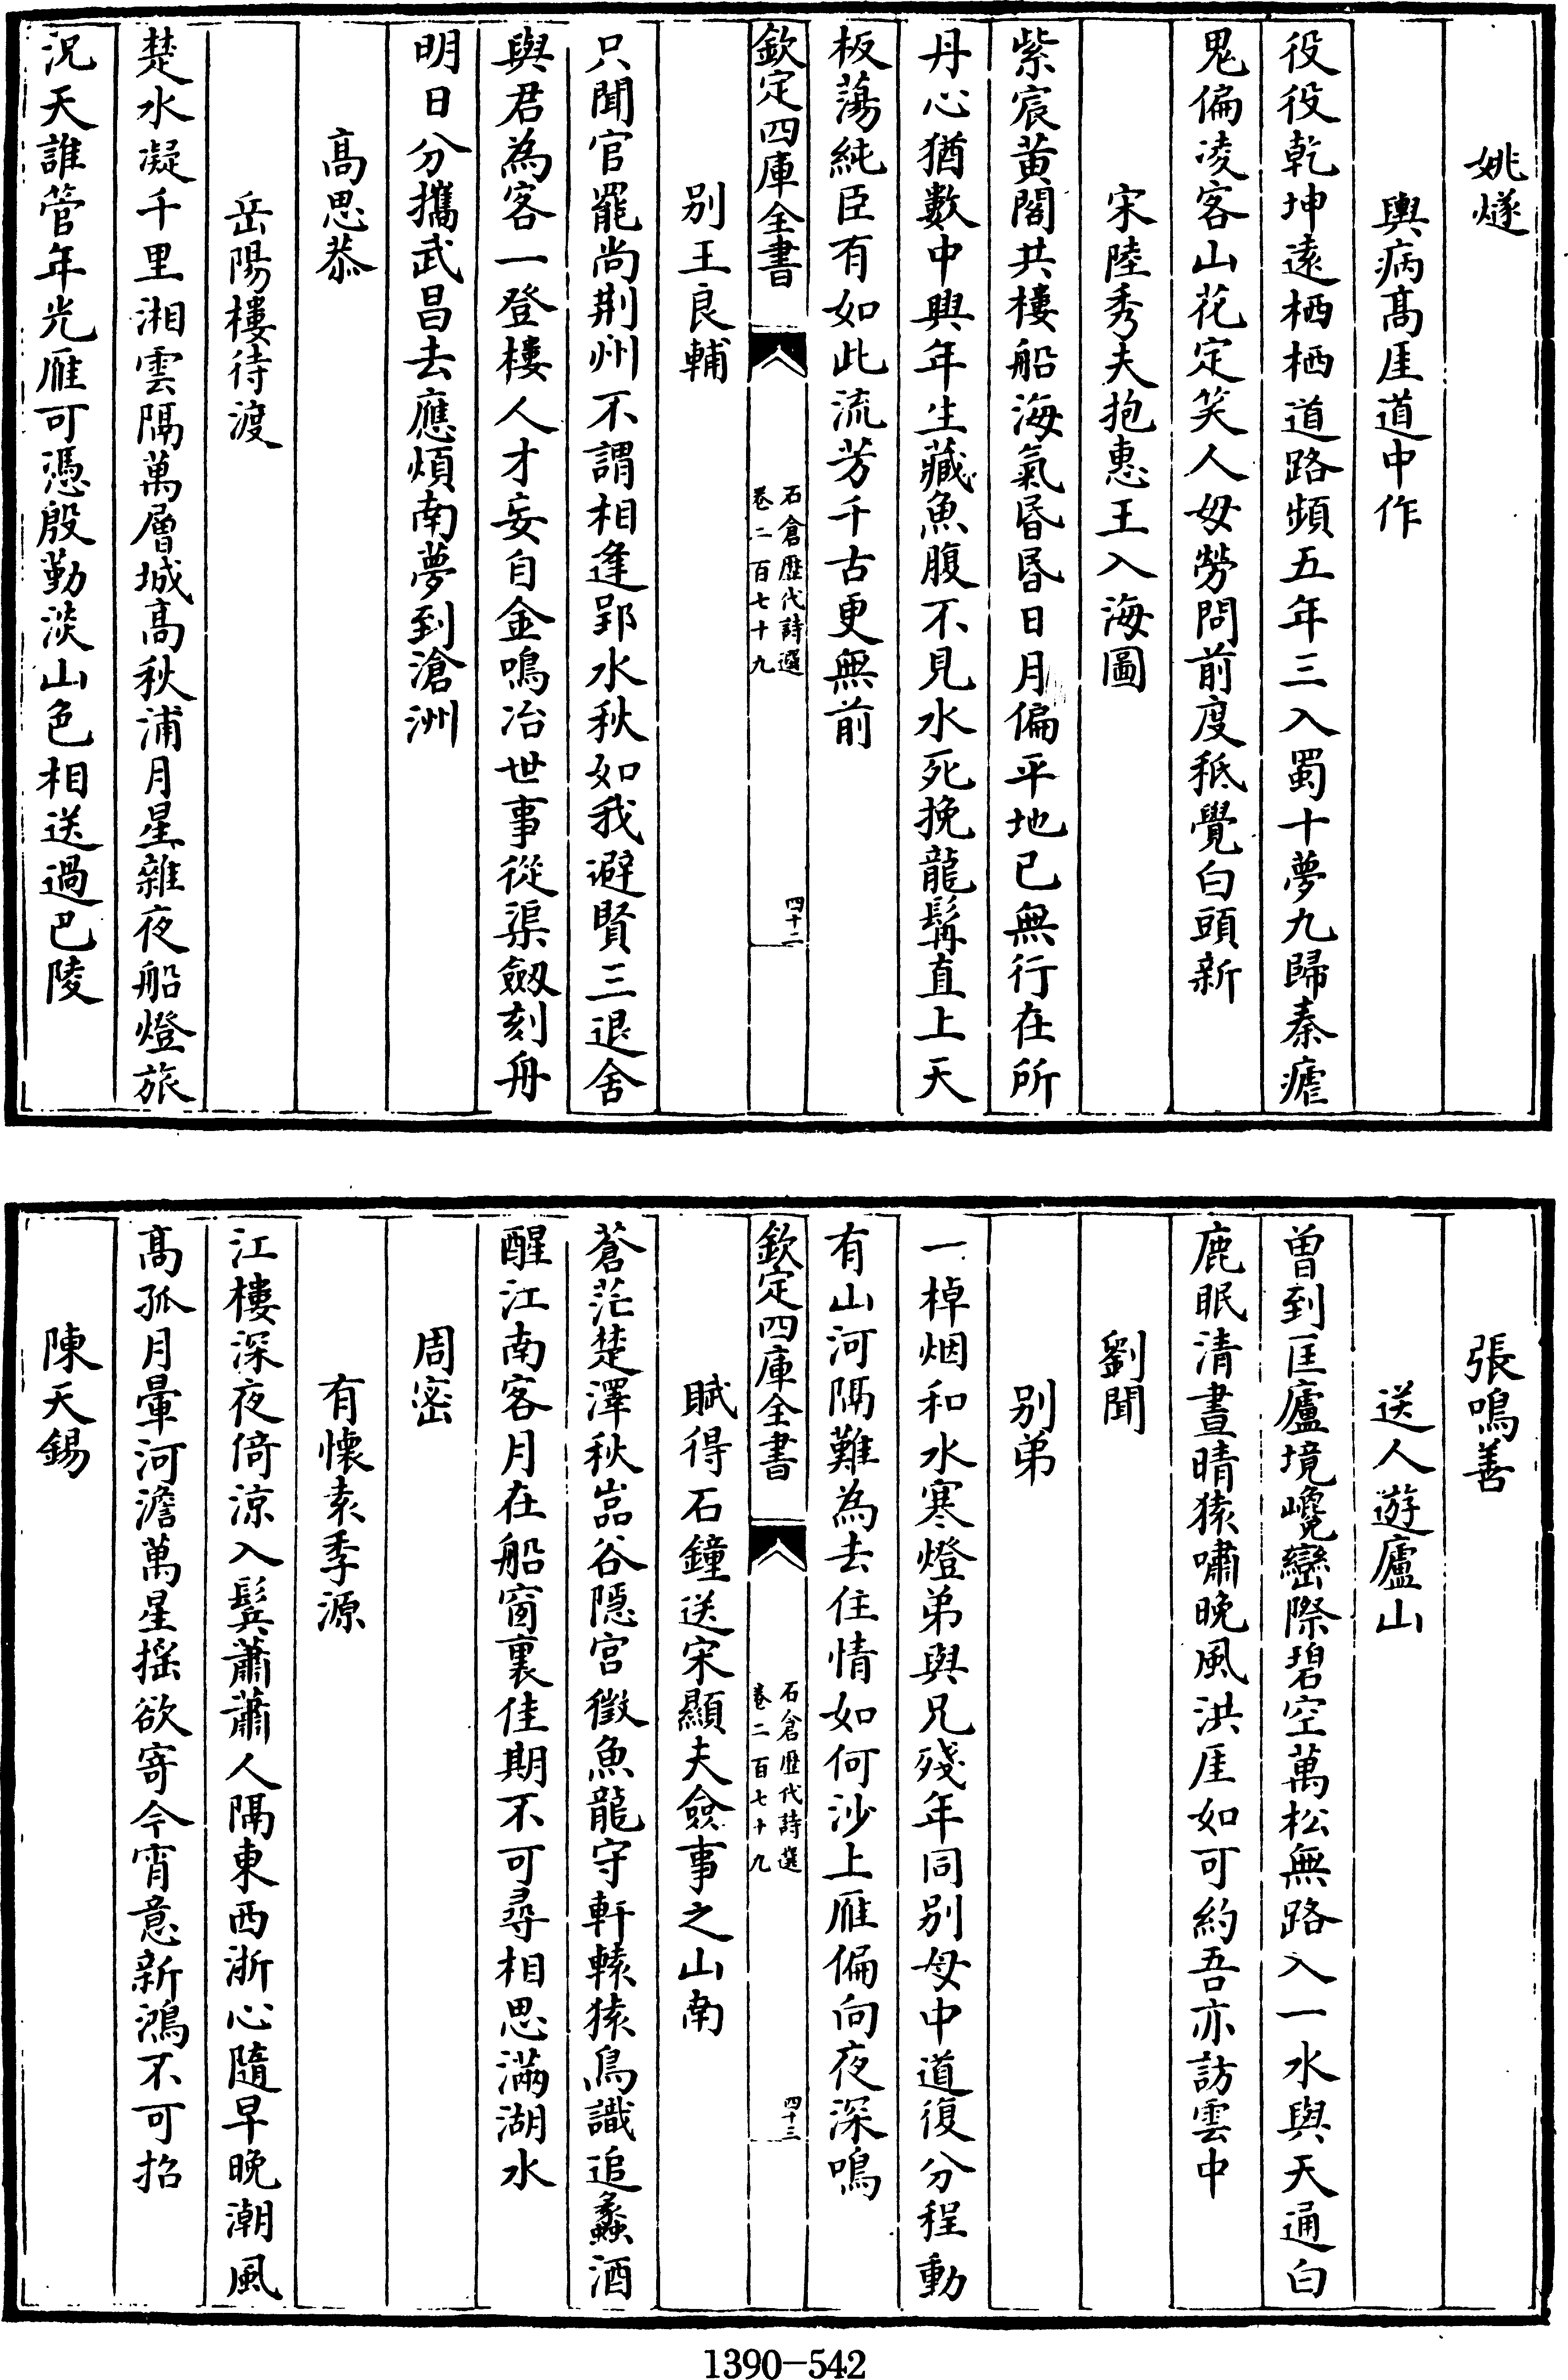 姚燧
輿病髙厓道中作
役役乾坤遠栖栖道路頻五年三入蜀十夢九歸秦瘧
鬼偏凌客山花定笑人毋勞問前度秪覺白頭新
宋陸秀夫抱惠王入海圖
紫宸黄閣共樓船海氣昏昏日月偏平地已無行在所
丹心猶數中興年生藏魚腹不見水死挽龍髯直上天
板蕩純臣有如此流芳千古更無前
欽定四庫全書
石倉歴代詩選
卷二百七十九
四十二
别王良輔
只聞官罷尚荆州不謂相逢郢水秋如我避賢三退舍
與君為客一登樓人才妄自金鳴冶世事從渠劔刻舟
明日分攜武昌去應煩南夢到滄洲
髙思恭
岳陽樓待渡
楚水凝千里湘雲隔萬層城髙秋浦月星雜夜船燈旅
況天誰管年光雁可憑殷勤淡山色相送過巴陵
張鳴善
送人遊廬山
曽到匡廬境巉巒際碧空萬松無路入一水與天通白
鹿眠清晝晴猿嘯晚風洪厓如可約吾亦訪雲中
劉聞
别弟
一棹烟和水寒燈弟與兄殘年同别母中道復分程動
有山河隔難為去住情如何沙上雁偏向夜深鳴
欽定四庫全書
石倉歴代詩選
卷二百七十九
四十三
賦得石鐘送宋顯夫僉事之山南
蒼茫楚澤秋嵓谷隱宫徵魚龍守軒轅猿鳥識追蠡酒
醒江南客月在船窗裏佳期不可尋相思滿湖水
周密
有懷袁季源
江樓深夜倚涼入鬂蕭蕭人隔東西浙心隨早晚潮風
髙孤月暈河澹萬星揺欲寄今宵意新鴻不可招
陳天錫
1390-542